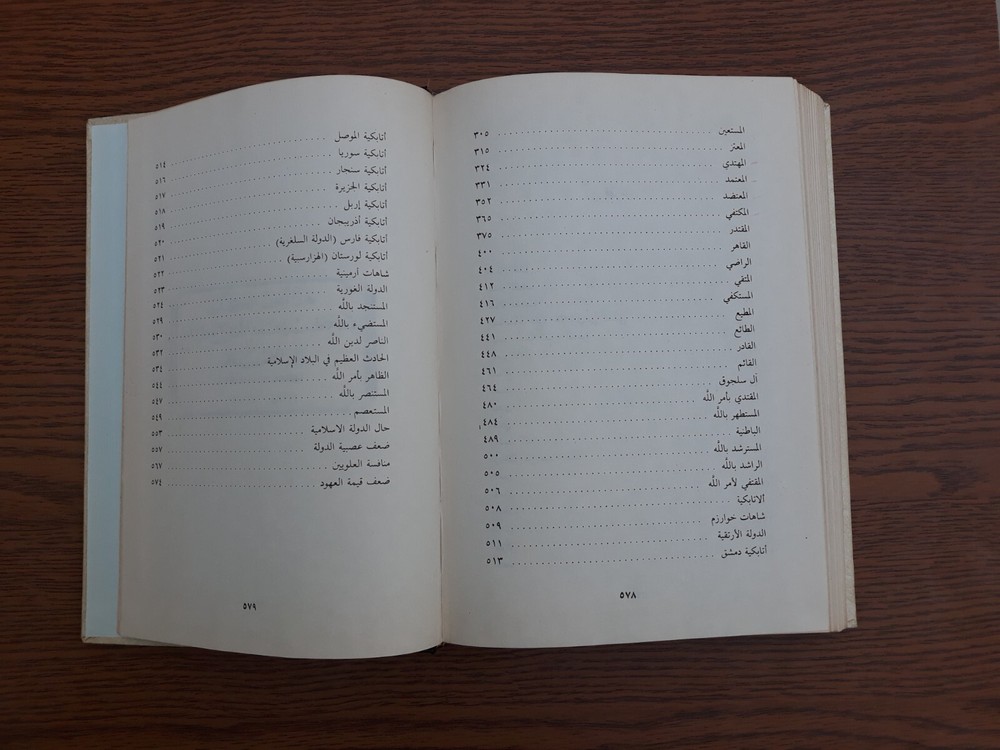 المستعين ... ٣٠٥
المعتز ... ٣١٥
المهتدي ... ٣٢٤
المعتمد ... ٣٣١
المعتضد ... ٣٥٢
المكتفي ... ٣٦٥
المقتدر ... ٣٧٥
القاهر ... ٤٠٠
الراضي ... ٤٠٤
المتقي ... ٤١٢
المستكفي ... ٤١٦
المطيع ... ٤٢٧
الطائع ... ٤٤١
القادر ... ٤٤٨
القائم ... ٤٦١
آل سلجوق ... ٤٦٤
المقتدي بأمر اللَّه ... ٤٨٠
المستظهر باللَّه ... ٤٨٤
الباطنية ... ٤٨٩
المسترشد باللَّه ... ٥٠٠
الراشد باللَّه ... ٥٠٥
المقتفي لأمر اللَّه ... ٥٠٦
ألاتابكية ... ٥٠٨
شاهات خوارزم ... ٥٠٩
الدولة الأرتقية ... ٥١١
أتابكية دمشق ... ٥١٣
٥٧٨
أتابكية الموصل ... ٥١٤
أتابكية سوريا ... ٥١٦
أتابكية سنجار ... ٥١٧
أتابكية الجزيرة ... ٥١٨
أتابكية إربل ... ٥١٩
أتابكية أذربيجان ... ٥٢٠
أتابكية فارس (الدولة السلغرية) ... ٥٢١
أتابكية لورستان (الهزارسبية) ... ٥٢٢
شاهات أرمينية ... ٥٢٣
الدولة الغورية ... ٥٢٤
المستنجد باللَّه ... ٥٢٩
المستضيء باللَّه ... ٥٣٠
الناصر لدين اللَّه ... ٥٣٢
الحادث العظيم في البلاد الإسلامية ... ٥٣٤
الظاهر بأمر اللَّه ... ٥٤٤
المستنصر باللَّه ... ٥٤٧
المستعصم ... ٥٤٩
حال الدولة الاسلامية ... ٥٥٣
ضعف عصبية الدولة ... ٥٥٧
منافسة العلويين ... ٥٦٧
ضعف قيمة العهود ... ٥٧٤
٥٧٩